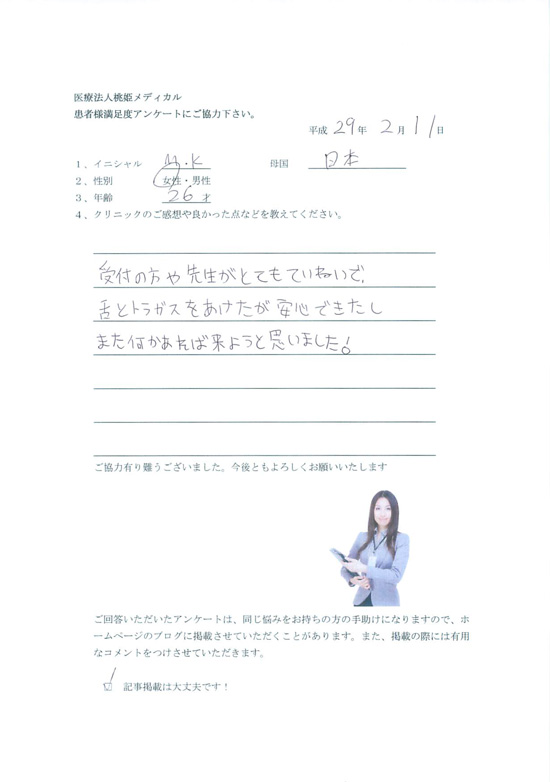 医療法人桃姫メディカル
患者様満足度アンケートにご協力下さい。
平成 29 年 2 月 11 日
1、イニシャル M・K 母国 日本
2、性別 女性・男性
3、年齢 26 才
4、クリニックのご感想や良かった点などを教えてください。
受付の方や先生がとてもていねいで、
舌とトラガスをあけたが安心できたし
また何かあれば来ようと思いました!
ご協力有り難うございました。今後ともよろしくお願いいたします
ご回答いただいたアンケートは、同じ悩みをお持ちの方の手助けになりますので、ホ
ームページのブログに掲載させていただくことがあります。また、掲載の際には有用
なコメントをつけさせていただきます。
☑ 記事掲載は大丈夫です！